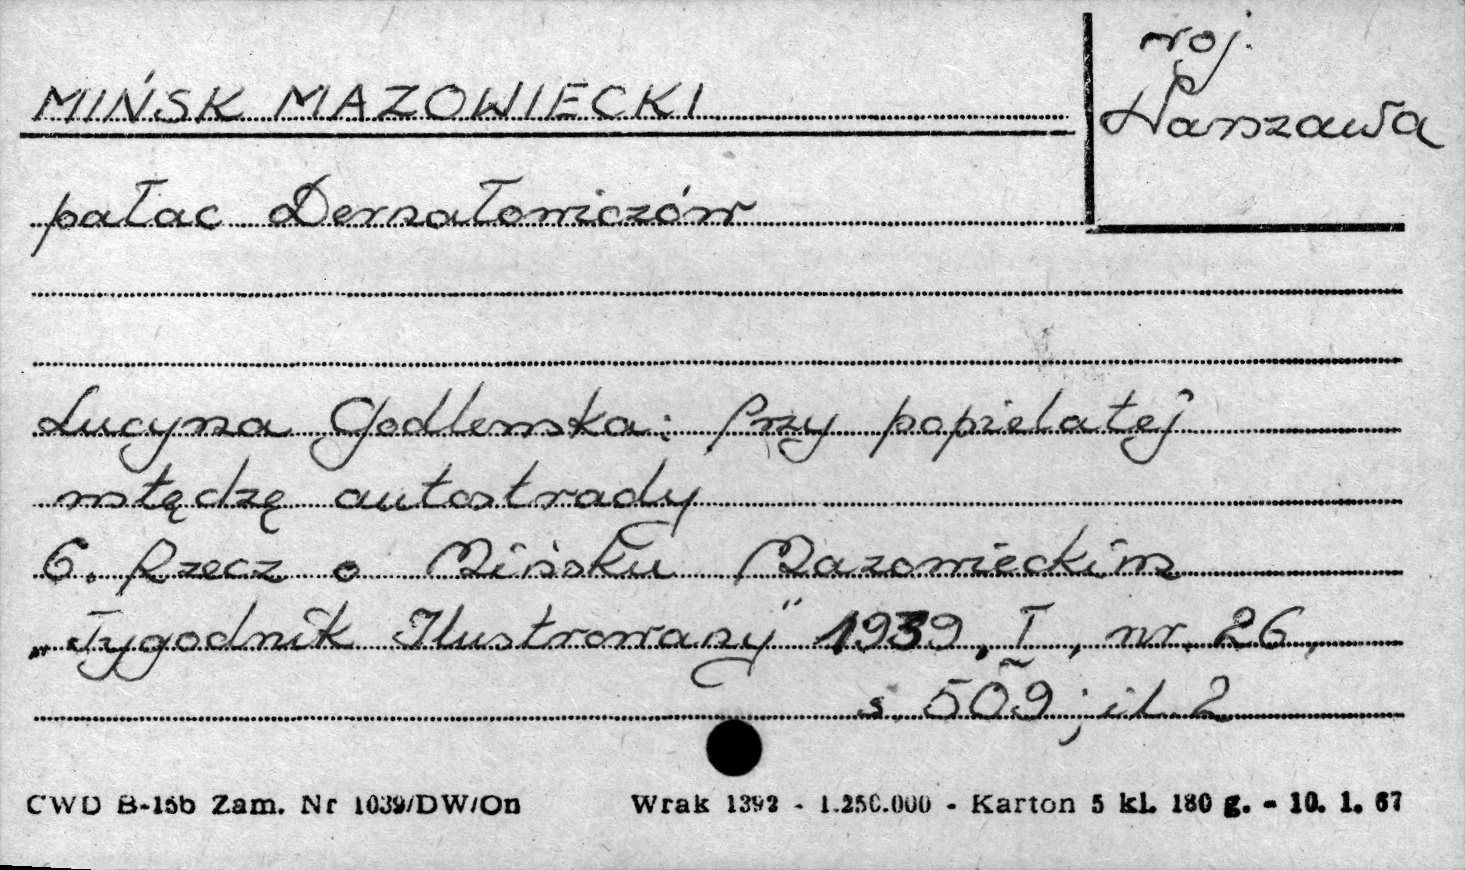 MIŃSK MAZOWIECKI
woj. Warszawa
pałac Dernałowiczów
Lucyna Godlewska: Przy popielatej
wstędze autostrady
6. Rzecz o Mińsku Mazowieckim
„Tygodnik Ilustrowany” 1939, I, nr 26,
s. 509; il. 2
CWD B-15b Zam. Nr 1039/DW/On Wrak 1392 - 1.250.000 - Karton 5 kl. 180 g. - 10. 1. 67